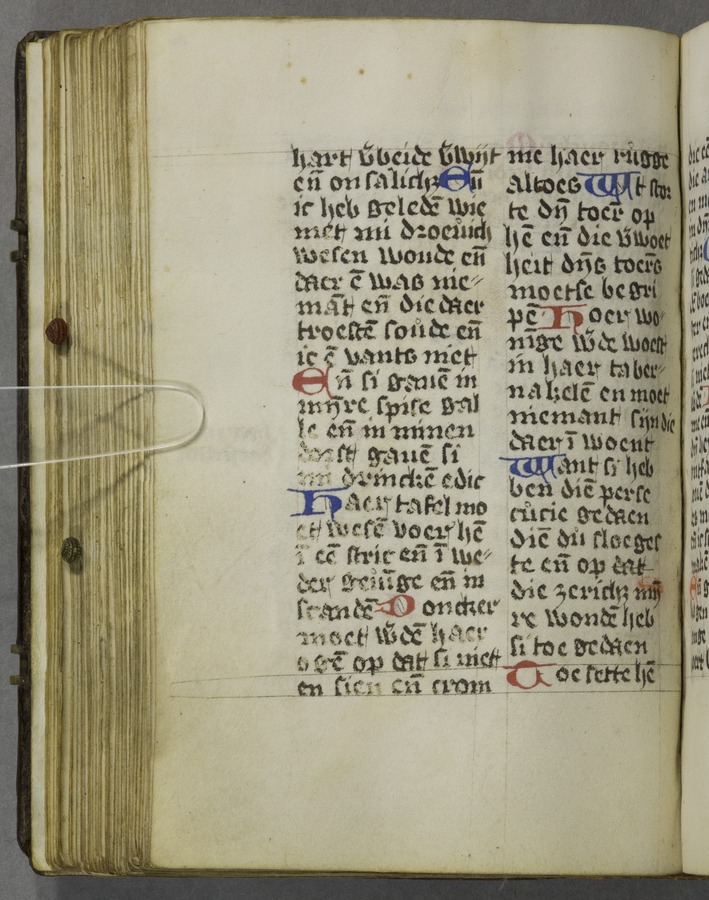 hart v̄beide v̄wijt
en̄ onsalich⁊ En̄
ic heb geledē wie
niet mi droeuich
wesen woude en̄
daer ē was nie⸗
māt en̄ die daer
troestē soude en̄
ic ē vants niet
En̄ si gauē in
mijre spise gal
le en̄ in minen
dorst gauē si
mi drinckē edic
Haer tafel mo
et wesē voer hē
ī eē stric en̄ ī we⸗
der geuīge en̄ in
scandē Doncker
moet w̄dē haer
ogē op dat si niet
en sien en̄ crom
me haer rūgge
altoes Wt stor
te dȳ toer̄ op
hē en̄ die v̄woet
heit dȳs toer̄s
moetse begri
pē Hoer wo
nīge w̄de woest
in haer taber
nakelē en moet
niemant sijn die
daer ī woent
Want si heb
ben diē perse
cucie gedaen
diē du sloeges
te en̄ op dat
die zerich⁊ mȳ
re wondē heb
si toe gedaen
Toe sette hē